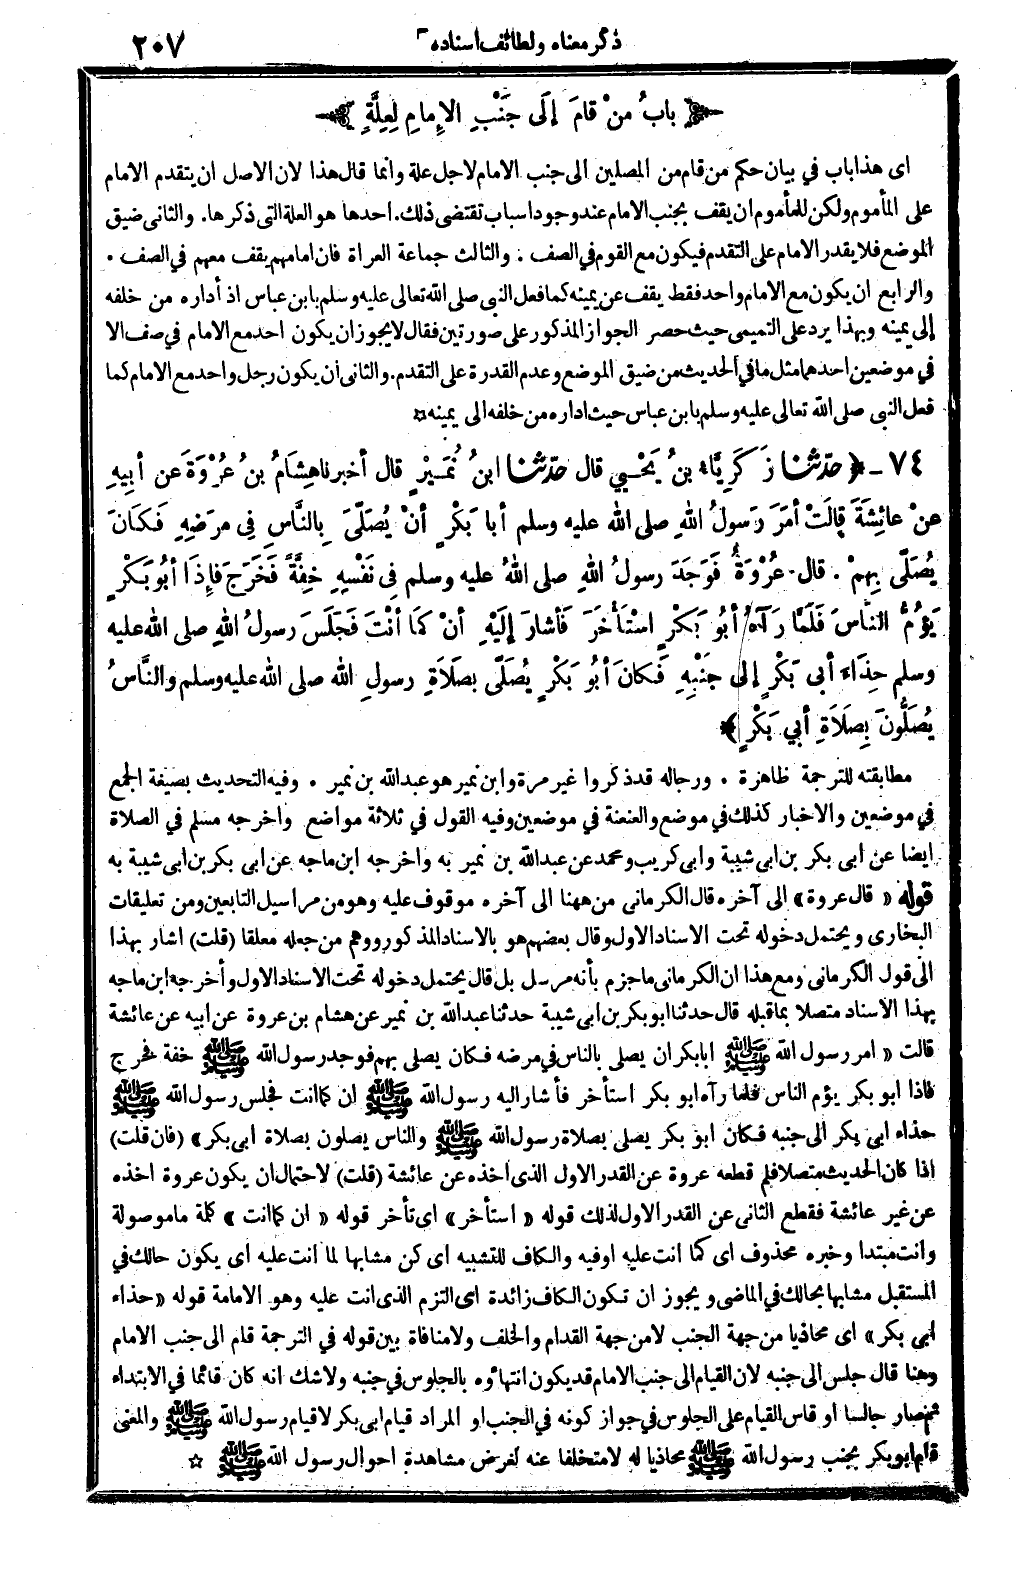 ذكر معناه ولطائف اسناده ٢٠٧
﴿ بابُ منْ قامَ إلَى جَنْبِ الإِمامِ لِعِلَّةٍ ﴾
اى هذا باب في بيان حكم من قام من المصلين الى جنب الامام لاجل علة وانما قال هذا لان الاصل ان يتقدم الامام
على المأموم ولكن للمأموم ان يقف بجنب الامام عند وجود اسباب تقتضى ذلك. احدها هو العلة التى ذكرها. والثانى ضيق
الموضع فلا يقدر الامام على التقدم فيكون مع القوم في الصف . والثالث جماعة العراة فان امامهم يقف معهم في الصف .
والرابع ان يكون مع الامام واحد فقط يقف عن يمينه كما فعل النبى صلى الله تعالى عليه وسلم بابن عباس اذ أداره من خلفه
إلى يمينه وبهذا يرد على التميمى حيث حصر الجواز المذكور على صورتين فقال لا يجوز ان يكون احد مع الامام في صف الا
في موضعين احدهما مثل ما في الحديث من ضيق الموضع وعدم القدرة على التقدم. والثانى أن يكون رجل واحد مع الامام كما
فعل النبى صلى الله تعالى عليه وسلم بابن عباس حيث اداره من خلفه الى يمينه ☆
٧٤ - ﴿ حدّثنا زَكَرِيَّاءُ بنُ يَحْيي قال حدّثنا ابنُ نُمَيْرٍ قال أخبرنا هِشَامُ بنُ عُرْوَةَ عن أبيهِ
عنْ عائِشَةَ قالَتْ أمَرَ رَسولُ اللهِ صلى الله عليه وسلم أبا بَكْرٍ أنْ يُصَلِّىَ بِالنَّاسِ فِى مَرَضِهِ فَكانَ
يُصَلِّى بِهِمْ . قال عُرْوَةُ فَوَجَدَ رسولُ اللهِ صلى اللهُ عليه وسلم فِى نَفْسِهِ خِفَّةً فَخَرَجَ فَإِذَا أبُو بَكْرٍ
يَؤُمُّ النَّاسَ فَلَمَّا رَآهُ أبُو بَكْرٍ اسْتَأْخَرَ فَأشارَ إلَيْهِ أنْ كَمَا أنْتَ فَجَلَسَ رسولُ اللهِ صلى الله عليه
وسلم حِذَاءَ أبى بَكْرٍ إلى جَنْبِهِ فَكانَ أبُو بَكْرٍ يُصَلِّى بِصَلَاةِ رسولِ الله صلى الله عليه وسلم والنَّاسُ
يُصَلُّونَ بِصَلَاةِ أبي بَكْرٍ ﴾
مطابقته للترجمة ظاهرة . ورجاله قد ذكروا غير مرة وابن نمير هو عبد الله بن نمير . وفيه التحديث بصيغة الجمع
في موضعين والاخبار كذلك في موضع والعنعنة في موضعين وفيه القول في ثلاثة مواضع واخرجه مسلم في الصلاة
ايضا عن ابى بكر بن ابى شيبة وابى كريب ومحمد عن عبد الله بن نمير به واخرجه ابن ماجه عن ابى بكر بن ابى شيبة به
قوله « قال عروة » الى آخره قال الكرمانى من ههنا الى آخره موقوف عليه وهو من مراسيل التابعين ومن تعليقات
البخارى ويحتمل دخوله تحت الاسناد الاول وقال بعضهم هو بالاسناد المذكور ووهم من جعله معلقا (قلت) اشار بهذا
الى قول الكرمانى ومع هذا ان الكرمانى ما جزم بأنه مرسل بل قال يحتمل دخوله تحت الاسناد الاول وأخرجه ابن ماجه
بهذا الاسناد متصلا بما قبله قال حدثنا ابو بكر بن ابى شيبة حدثنا عبد الله بن نمير عن هشام بن عروة عن ابيه عن عائشة
قالت « امر رسول الله ﷺ ابا بكر ان يصلى بالناس في مرضه فكان يصلى بهم فوجد رسول الله ﷺ خفة فخرج
فاذا ابو بكر يؤم الناس فلما رآه ابو بكر استأخر فأشار اليه رسول الله ﷺ ان كما انت فجلس رسول الله ﷺ
حذاء ابى بكر الى جنبه فكان ابو بكر يصلى بصلاة رسول الله ﷺ والناس يصلون بصلاة ابى بكر » (فان قلت)
اذا كان الحديث متصلا فلم قطعه عروة عن القدر الاول الذى اخذه عن عائشة (قلت) لاحتمال ان يكون عروة اخذه
عن غير عائشة فقطع الثانى عن القدر الاول لذلك قوله « استأخر » اى تأخر قوله « ان كما انت » كلمة ما موصولة
وانت مبتدا وخبره محذوف اى كما انت عليه او فيه والكاف للتشبيه اى كن مشابها لما انت عليه اى يكون حالك في
المستقبل مشابها بحالك في الماضى ويجوز ان تكون الكاف زائدة اى التزم الذى انت عليه وهو الامامة قوله « حذاء
ابى بكر » اى محاذيا من جهة الجنب لا من جهة القدام والخلف ولا منافاة بين قوله في الترجمة قام الى جنب الامام
وهنا قال جلس الى جنبه لان القيام الى جنب الامام قد يكون انتهاؤه بالجلوس في جنبه ولا شك انه كان قائما في الابتداء
ثم صار جالسا او قاس القيام على الجلوس في جواز كونه في الجنب او المراد قيام ابى بكر لا قيام رسول الله ﷺ والمعنى
قام ابو بكر بجنب رسول الله ﷺ محاذيا له لا متخلفا عنه لغرض مشاهدة احوال رسول الله ﷺ ☆